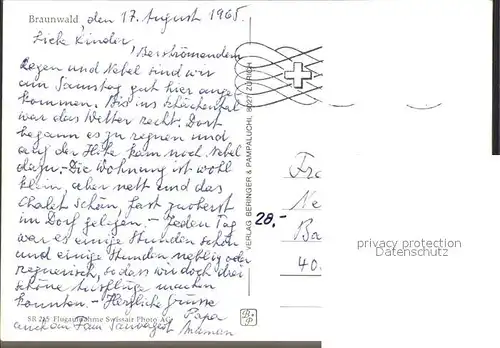 Braunwald, den 17. August 1965.
Liebe Kinder,
Bei strömendem
Regen und Nebel sind wir
am Samstag gut hier ange
kommen. Bis ins Schächental
war das Wetter recht. Dort
begann es zu regnen und
auf der Höhe kam noch Nebel
dazu. - Die Wohnung ist wohl
klein, aber nett und das
Chalet schön, fast zuoberst
im Dorf gelegen. - Jeden Tag
war es einige Stunden schön
und einige Stunden neblig oder
regnerisch, sodass wir doch drei
schöne Ausflüge machen
konnten. - Herzliche Grüsse
Papa
SR 215 Flugaufnahme Swissair Photo AG
auch an Fam
VERLAG BERINGER & PAMPALUCHI, 8027 ZÜRICH
Fr
Ne
28,-
Ba
40.
privacy protection
Datenschutz
B P